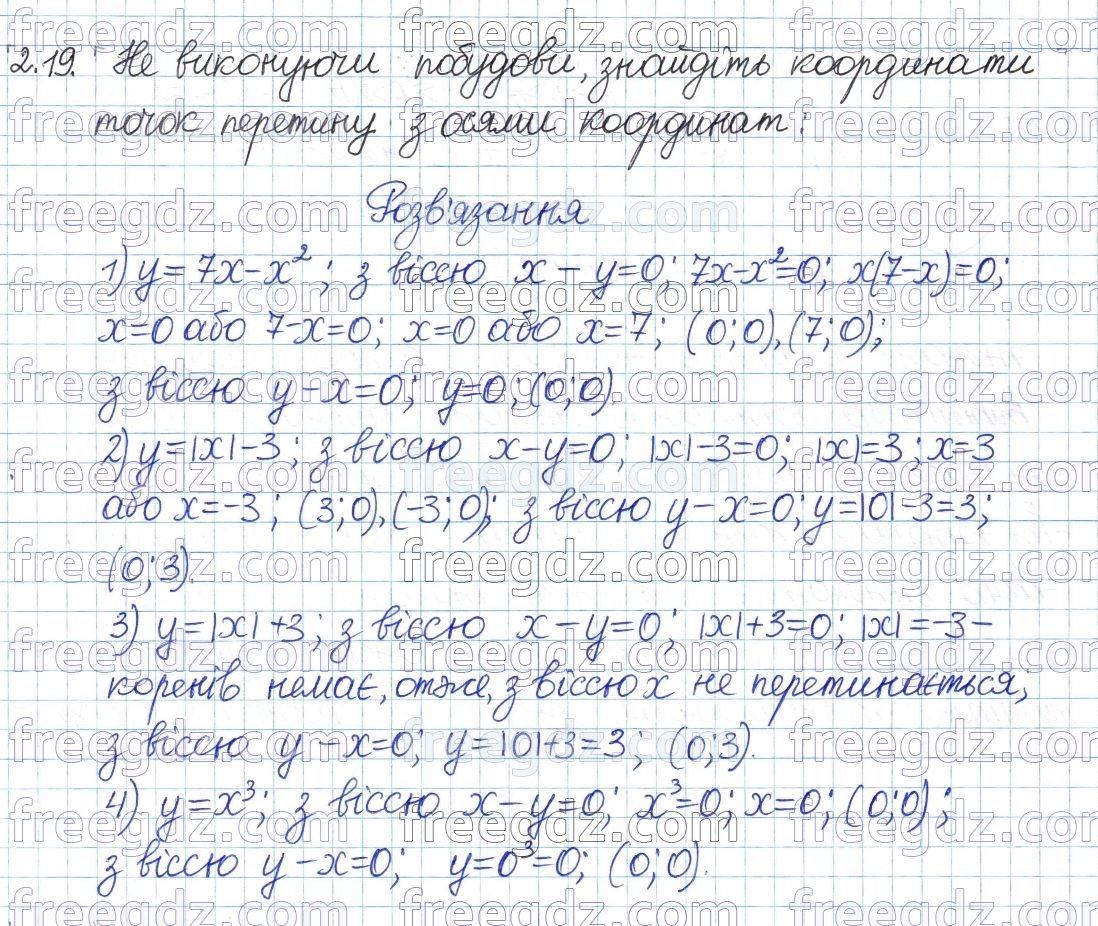 2.19. Не виконуючи побудови, знайдіть координати
точок перетину з осями координат:
Розв'язання
1) y = 7x - x²; з віссю x - y=0; 7x-x²=0; x(7-x)=0;
x=0 або 7-x=0; x=0 або x=7; (0;0), (7;0);
з віссю y - x=0; y=0; (0;0).
2) y=|x|-3; з віссю x-y=0; |x|-3=0; |x|=3; x=3
або x=-3; (3;0), (-3;0); з віссю y-x=0; y=|0|-3=3;
(0;3).
3) y=|x|+3; з віссю x-y=0; |x|+3=0; |x|=-3-
коренів немає, отже, з віссю x не перетинається;
з віссю y-x=0; y=|0|+3=3; (0;3).
4) y=x³; з віссю x-y=0; x³=0; x=0; (0;0);
з віссю y-x=0; y=0³=0; (0;0).
freegdz.com